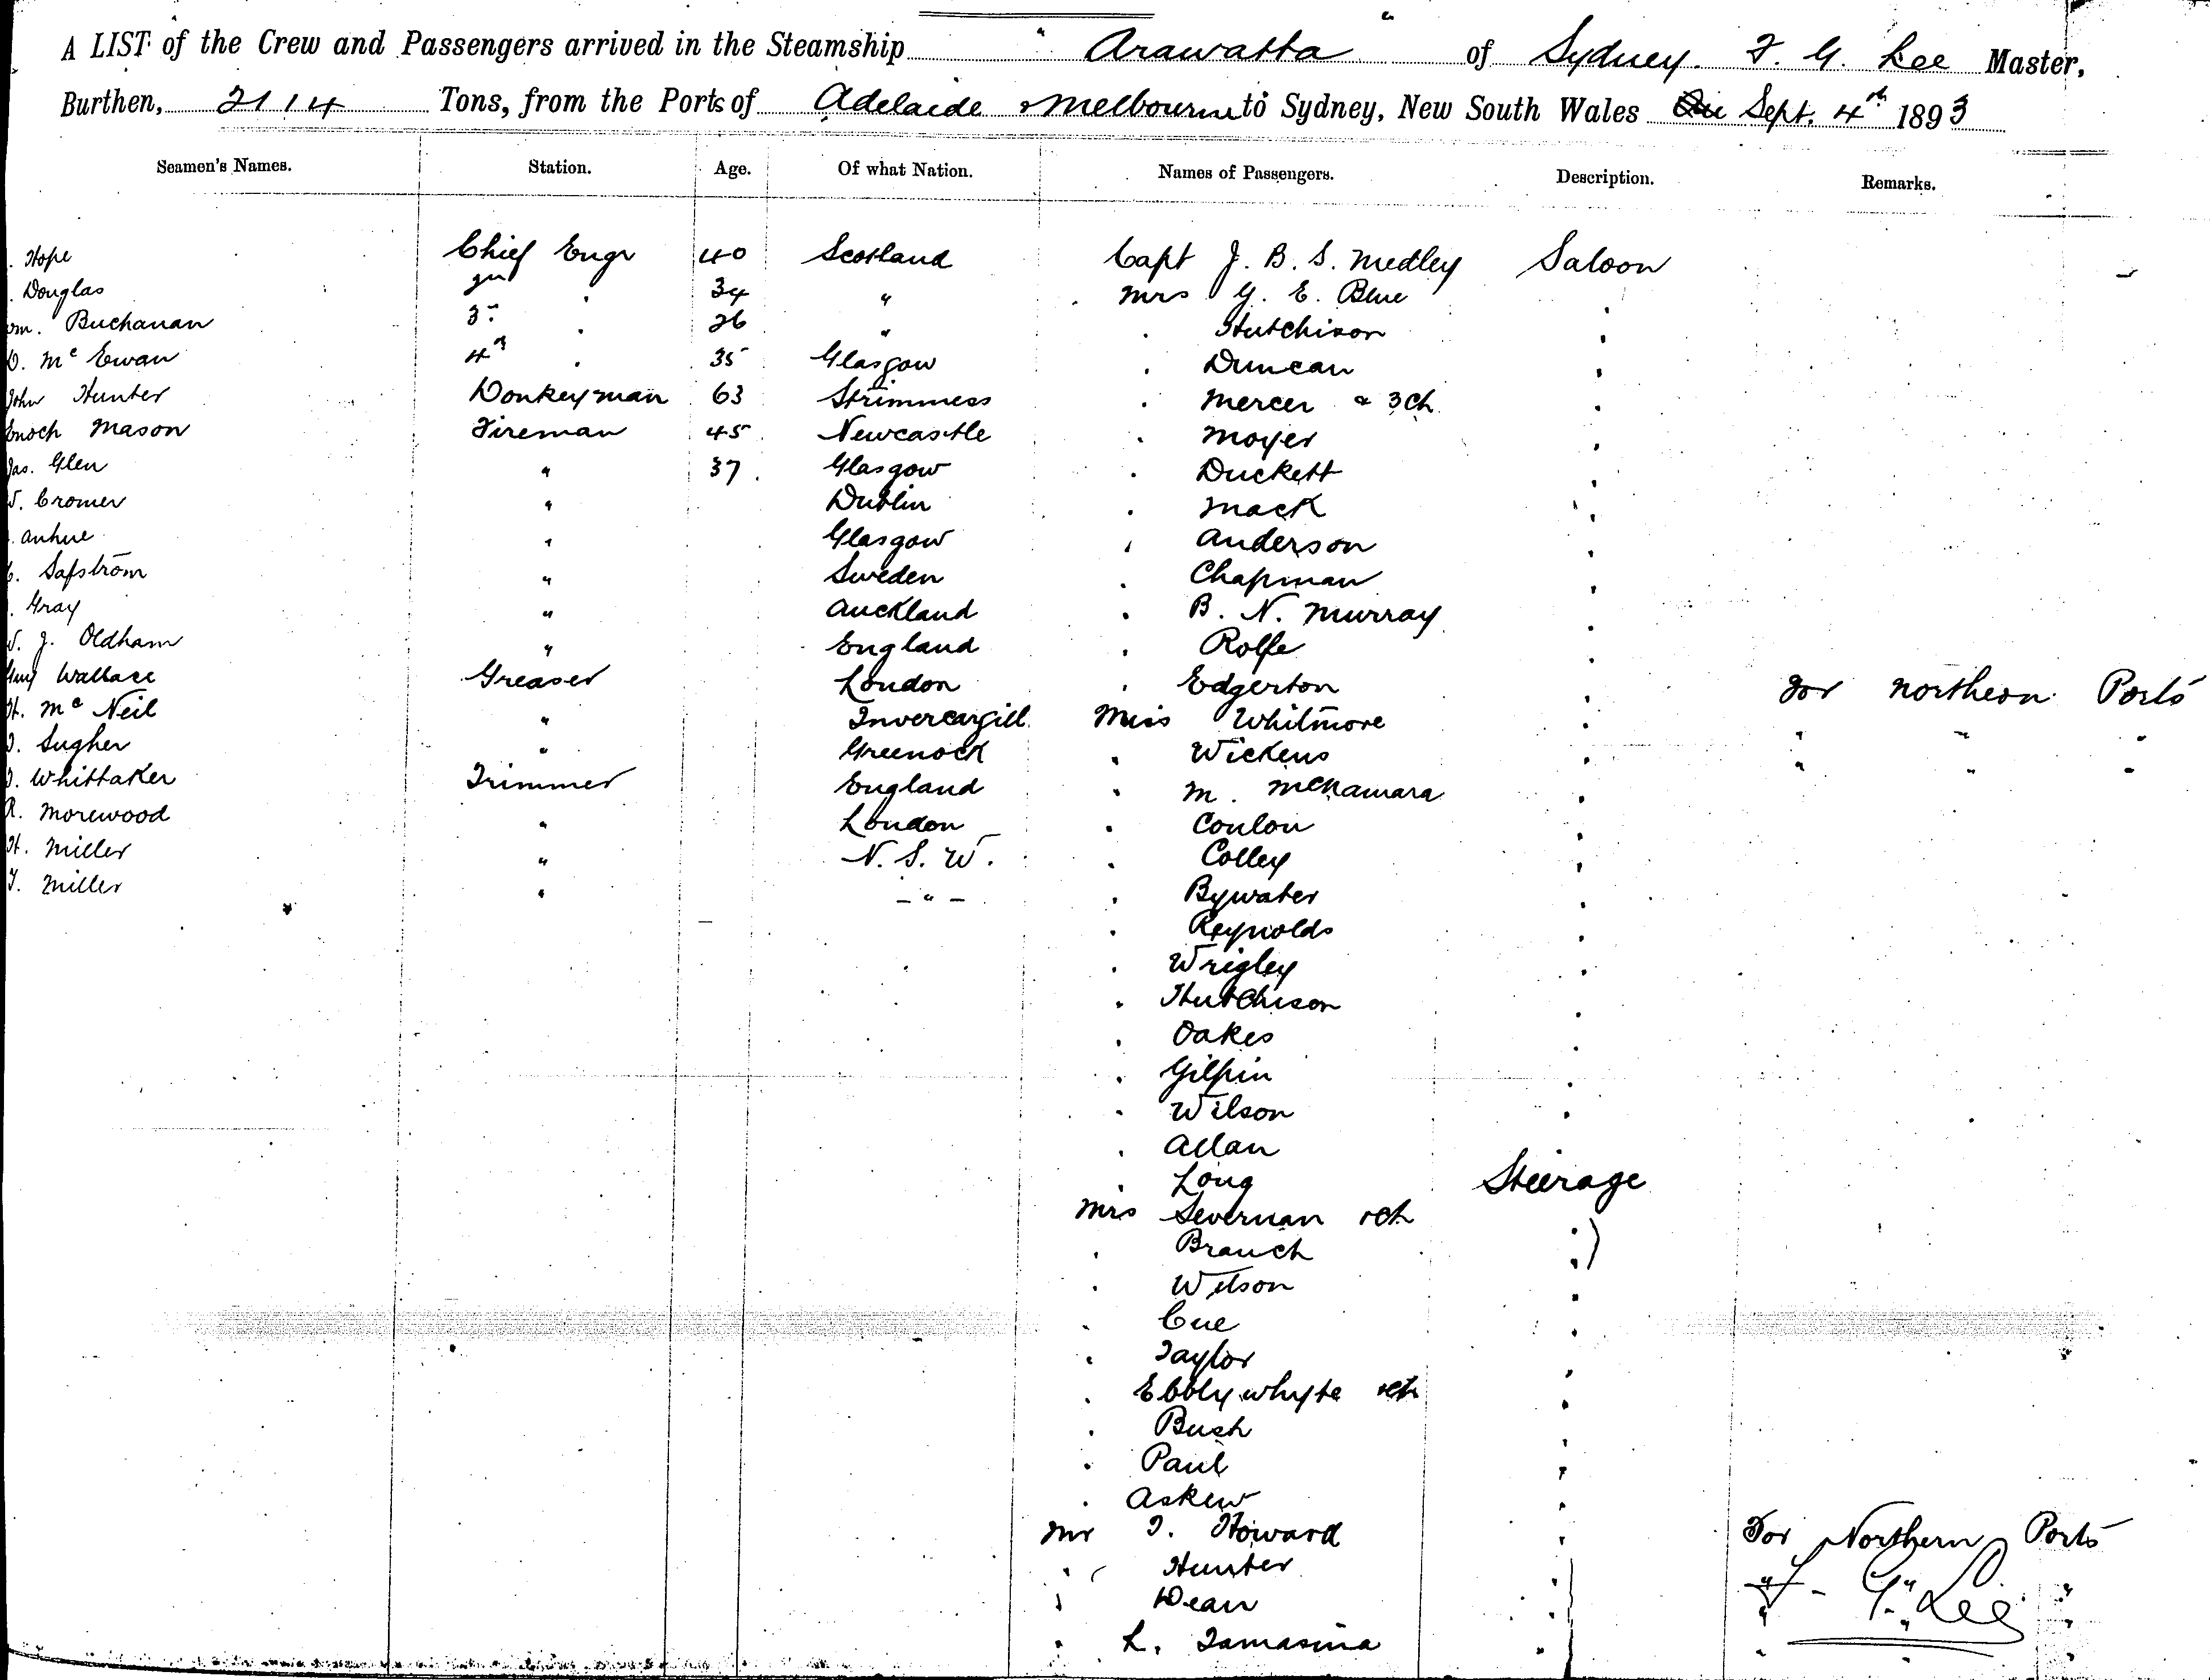 A LIST of the Crew and Passengers arrived in the Steamship "Arawatta" of Sydney. F. G. Lee Master,
Burthen, 2114 Tons, from the Ports of Adelaide & Melbourne to Sydney, New South Wales Sept. 4th 1893
Seamen's Names. Station. Age. Of what Nation. Names of Passengers. Description. Remarks.
Hope Chief Engr 40 Scotland Capt J. B. S. Medley Saloon
Douglas 2nd " 34 " Mrs G. E. Blue "
Wm. Buchanan 3rd " 26 " " Hutchison "
D. Mc Ewan 4th " 35 Glasgow " Duncan "
John Hunter Donkeyman 63 Strimness " Mercer & 3 Ch "
Enoch Mason Fireman 45 Newcastle " Moyer "
Jas. Glen " 37 Glasgow " Duckett "
Cromer " Dublin " Mack "
" Glasgow " Anderson "
Safstrom " Sweden " Chapman "
Gray " Auckland " B. N. Murray "
J. Oldham " England " Rolfe "
Wallace Greaser London " Edgerton " For Northern Ports
H. Mc Neil " Invercargill Miss Whitmore " " " "
Sugher " Greenock " Wickens " " " "
Whittaker Trimmer England " M. McNamara "
R. Morewood " London " Coulon "
H. Miller " N. S. W. " Colley "
T. Miller " - " - " Bywater "
" Reynolds "
" Wrigley "
" Hutchison "
" Oakes "
" Gilpin "
" Wilson "
" Allan
" Long Steerage
Mrs Severnan & Ch "
" Branch "
" Wilson "
" Cue "
" Taylor "
" Ebblywhyte & Ch "
" Bush "
" Paul "
" Askew "
Mr T. Howard " For Northern Ports
" Hunter " " " "
" Dean " " " "
" L. Tamasina " " " "
F. G. Lee